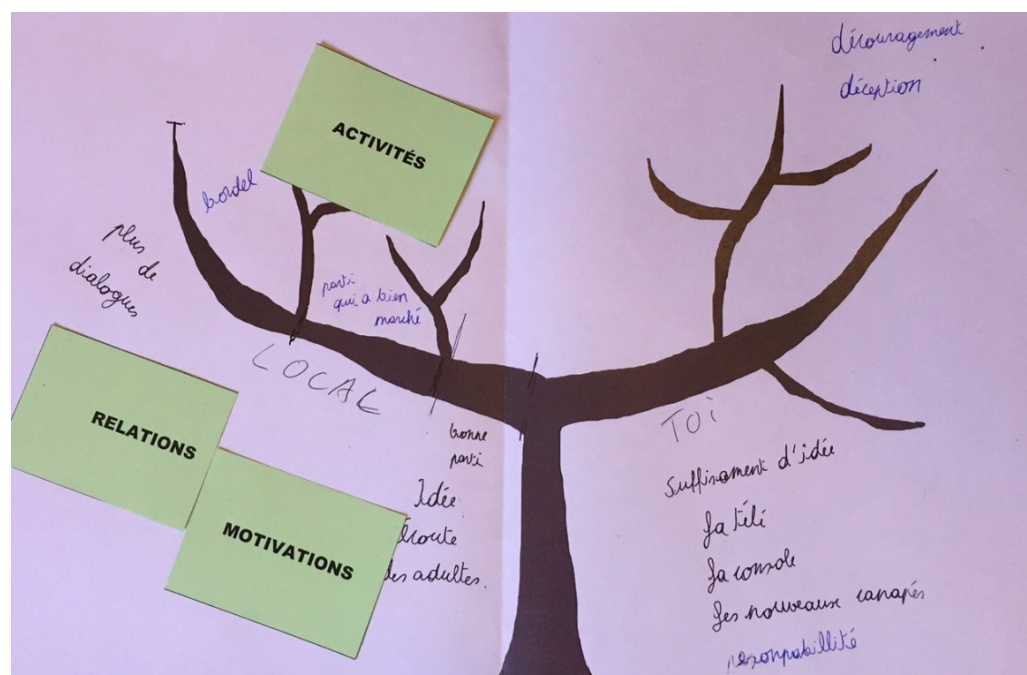 découragement
déception
ACTIVITÉS
bordel
plus de
dialogues
parti
qui a bien
marché
LOCAL
TOi
RELATIONS
MOTIVATIONS
bonne
parti
Idée
des adultes.
Suffisament d'idée
la télé
la console
les nouveaux canapés